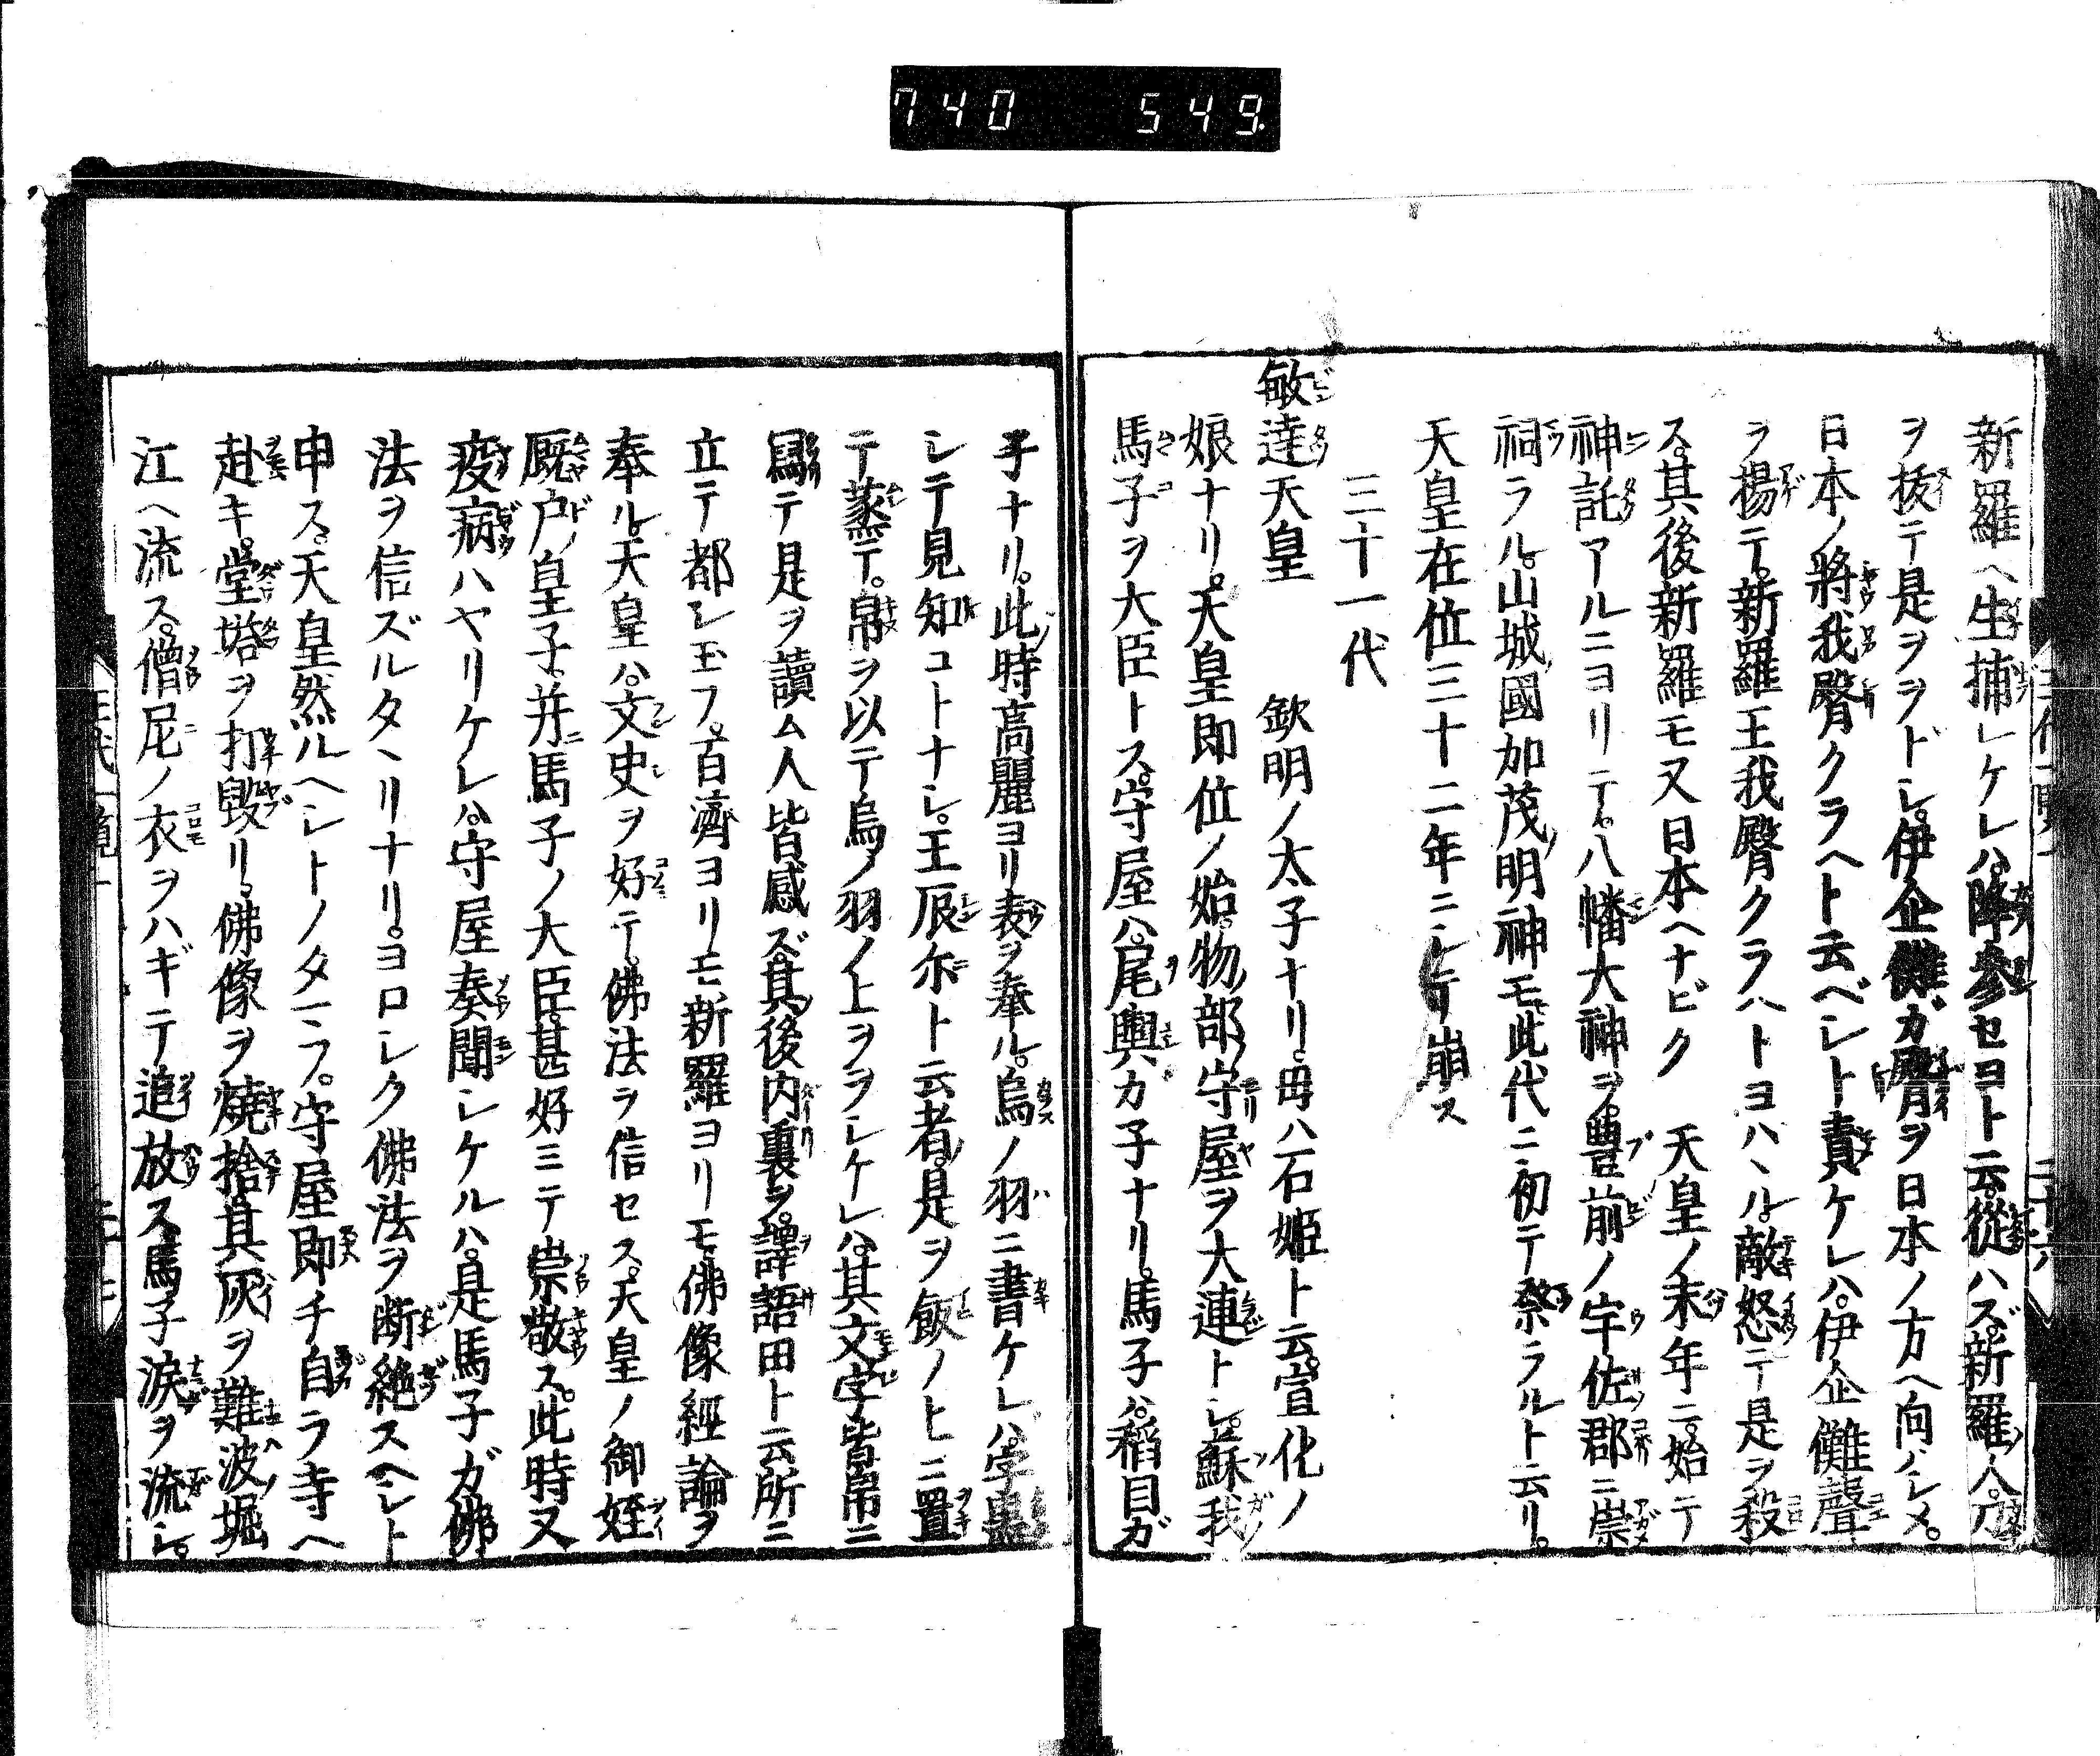 740 549.
新羅ヘ生捕レケレハ。降參セヨト云。從ハズ。新羅ノ人。刀
ヲ拔テ是ヲヲドし。伊企儺ガ臀ヲ日本ノ方ヘ向ハしメ。
日本ノ將我臀クラヘト云ベシト責ケレハ。伊企儺聲
ヲ揚テ。新羅王我臀クラハトヨハヽル。敵怒テ是ヲ殺
ス。其後新羅モ又日本ヘナビク 天皇ノ末年ニ。始テ
神託アルニヨリテ。八幡大神ヲ豐前ノ宇佐郡ニ崇
祠ラル。山城國加茂ノ明神モ。此代ニ初テ祭ラルト云リ。
天皇在位三十二年ニシテ崩ス
三十一代
敏達天皇 欽明ノ太子ナリ。母ハ石姬ト云。宣化ノ
娘ナリ。天皇即位ノ始。物部ノ守屋ヲ大連トし。蘇我ノ
馬子ヲ大臣トス。守屋ハ。尾輿カ子ナリ。馬子ハ。稻目ガ
子ナリ。此時高麗ヨリ表ヲ奉ル。烏ノ羽ニ書ケレハ。字黑
シテ見知コトナし。王辰尓ト云者。是ヲ飯ノヒニ置
テ蒸テ。帛ヲ以テ烏ノ羽ノ上ヲヲしケレハ。其文字皆帛ニ
寫テ是ヲ讀ム人皆感ズ。其後内裏ヲ。譯語田ト云所ニ
立テ都シ玉フ。百濟ヨリモ新羅ヨリモ。佛像經論ヲ
奉ル。天皇ハ。文史ヲ好テ。佛法ヲ信セス。天皇ノ御姪
厩戸ノ皇子。并馬子ノ大臣。甚好ミテ崇敬ス。此時又
疫病ハヤリケレハ。守屋奏聞シケルハ。是馬子ガ佛
法ヲ信ズルタヽリナリ。ヨロシク佛法ヲ断絶スヘシト
申ス。天皇然ルヘシトノタマフ。守屋即チ自ラ寺ヘ
赴キ。堂塔ヲ打毀リ。佛像ヲ燒捨其灰ヲ難波堀
江ヘ流ス。僧尼ノ衣ヲハギテ追放ス馬子淚ヲ流し。